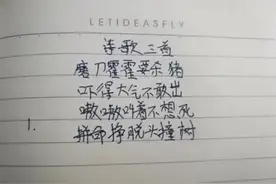 LETIDEASFLY
诗歌三首
磨刀霍霍要杀猪
吓得大气不敢出
嗷嗷叫着不想死
1.
拼命挣脱头撞树